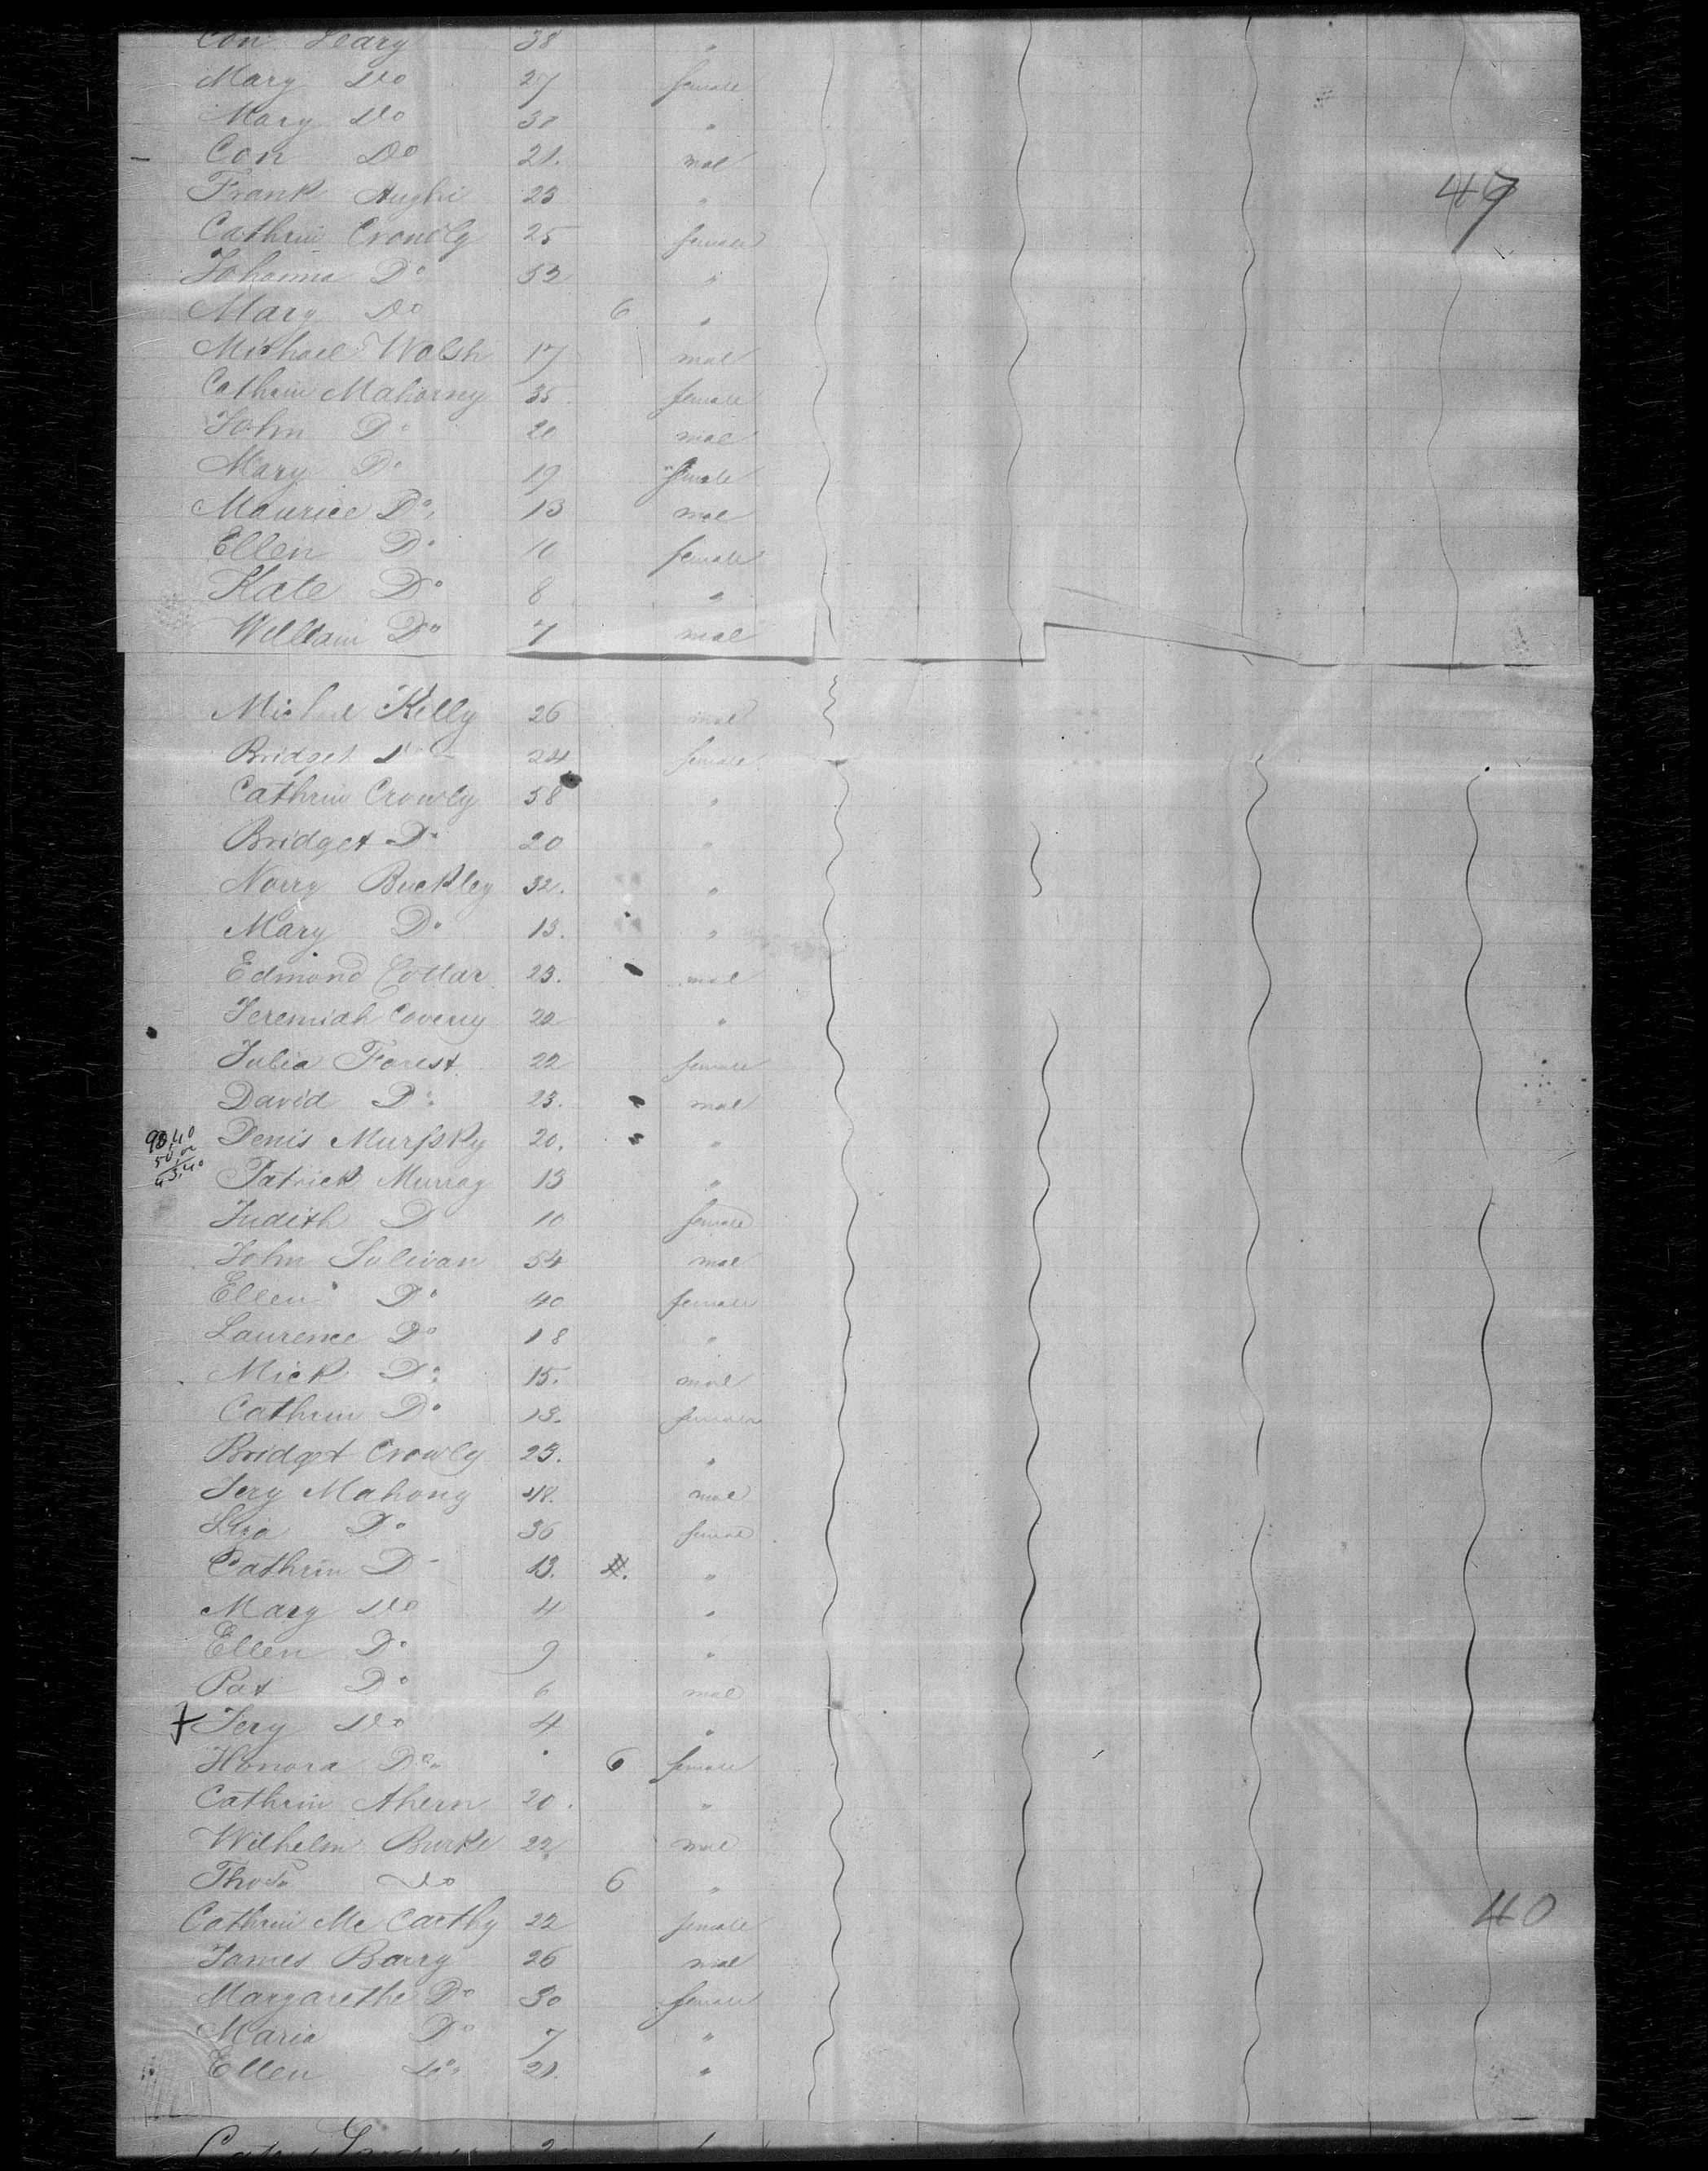 Con Leary 38 "
Mary Do 27 female
Mary Do 37 "
Con Do 21. mal
Frank Hughi 23 "
47
Cathrin Crowly 25 female
Johanna Do 52 "
Mary Do 6 "
Michael Walsh 17 mal
Cathrin Mahorny 35. female
John Do 20 mal
Mary Do 19 female
Maurice Do. 13 mal
Ellen Do 10 female
Kate Do 8 "
William Do 7 mal
Michael Kelly 26 mal
Bridget Do 24 female
Cathrin Crowly 58 "
Bridget Do 20 "
Norry Buckley 32. "
Mary Do 13. "
Edmond Cottar 23. mal
Jeremiah Coveny 20 "
Julia Forest 22 female
David Do 23. mal
Denis Murfsky 20. "
Patrick Murray 13 "
Judith D 10 female
John Sulivan 54 mal
Ellen Do 40 female
Laurence Do 18 "
Mick Do 15. mal
Cathrin Do 13. female
Bridget Crowly 23. "
Jery Mahony 48. mal
Do 36 female
Cathrin D 13. "
Mary Do 4 "
Ellen Do 9 "
Pat Do 6 mal
Jery Do 4 "
Honora Do 6 female
Cathrin Ahern 20. "
Wilhelm Burke 22 mal
Do 6 "
Cathrin Mc Carthy 22 female
40
James Barry 26 mal
Margarethe Do 30 female
Maria Do 7 "
Ellen Do 21. "